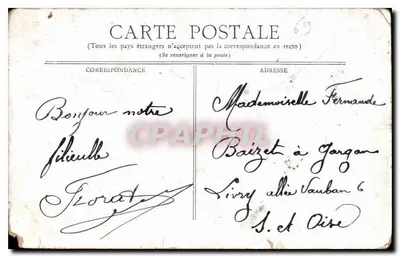 CARTE POSTALE
(Tous les pays étrangers n'acceptent pas la correspondance au recto)
(Se renseigner à la poste)
CORRESPONDANCE
ADRESSE
Bonjour notre
filieulle
Florat
Mademoiselle Fernande
Baizet à Gargan
Livry allée Vauban 6
S. et Oise